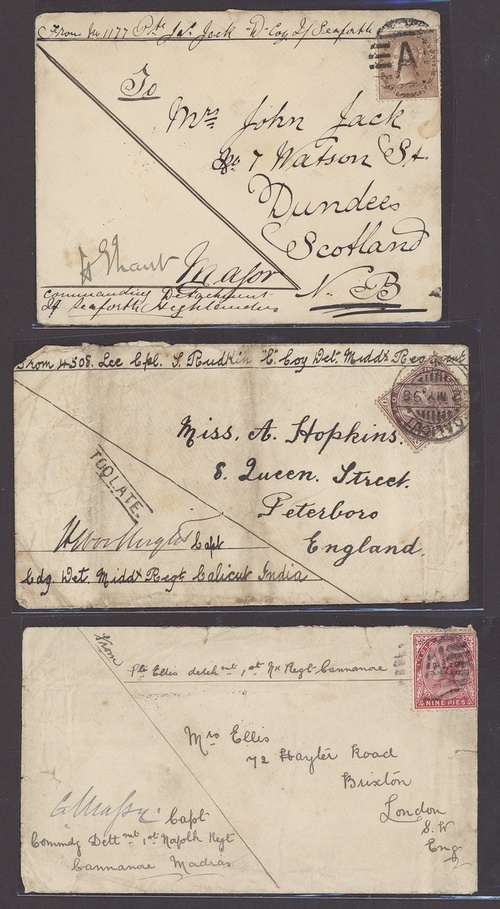 From No 1177 Pte Jas Jack "D" Coy 2/Seaforth
A
To
Mrs John Jack
7 Watson St.
Dundee
Scotland
N. B
Major
Commanding Detachment
2d Seaforth Highlanders
From 4508. Lce Cpl. S. Rudkin "C" Coy Det. Middx Regiment
CALICUT
MY. 98
Miss. A. Hopkins.
8. Queen. Street.
Peterboro
England.
TOO LATE.
Capt
Cdg. Det. Middx Regt Calicut India
From
Pte Ellis detchmt, 1st Regt Cannanore
NINE PIES
Mrs Ellis
72 Hayter Road
Brixton
London
S. W
Eng
Capt
Commdg Dettmt, 1st Norfolk Regt
Cannanore Madras